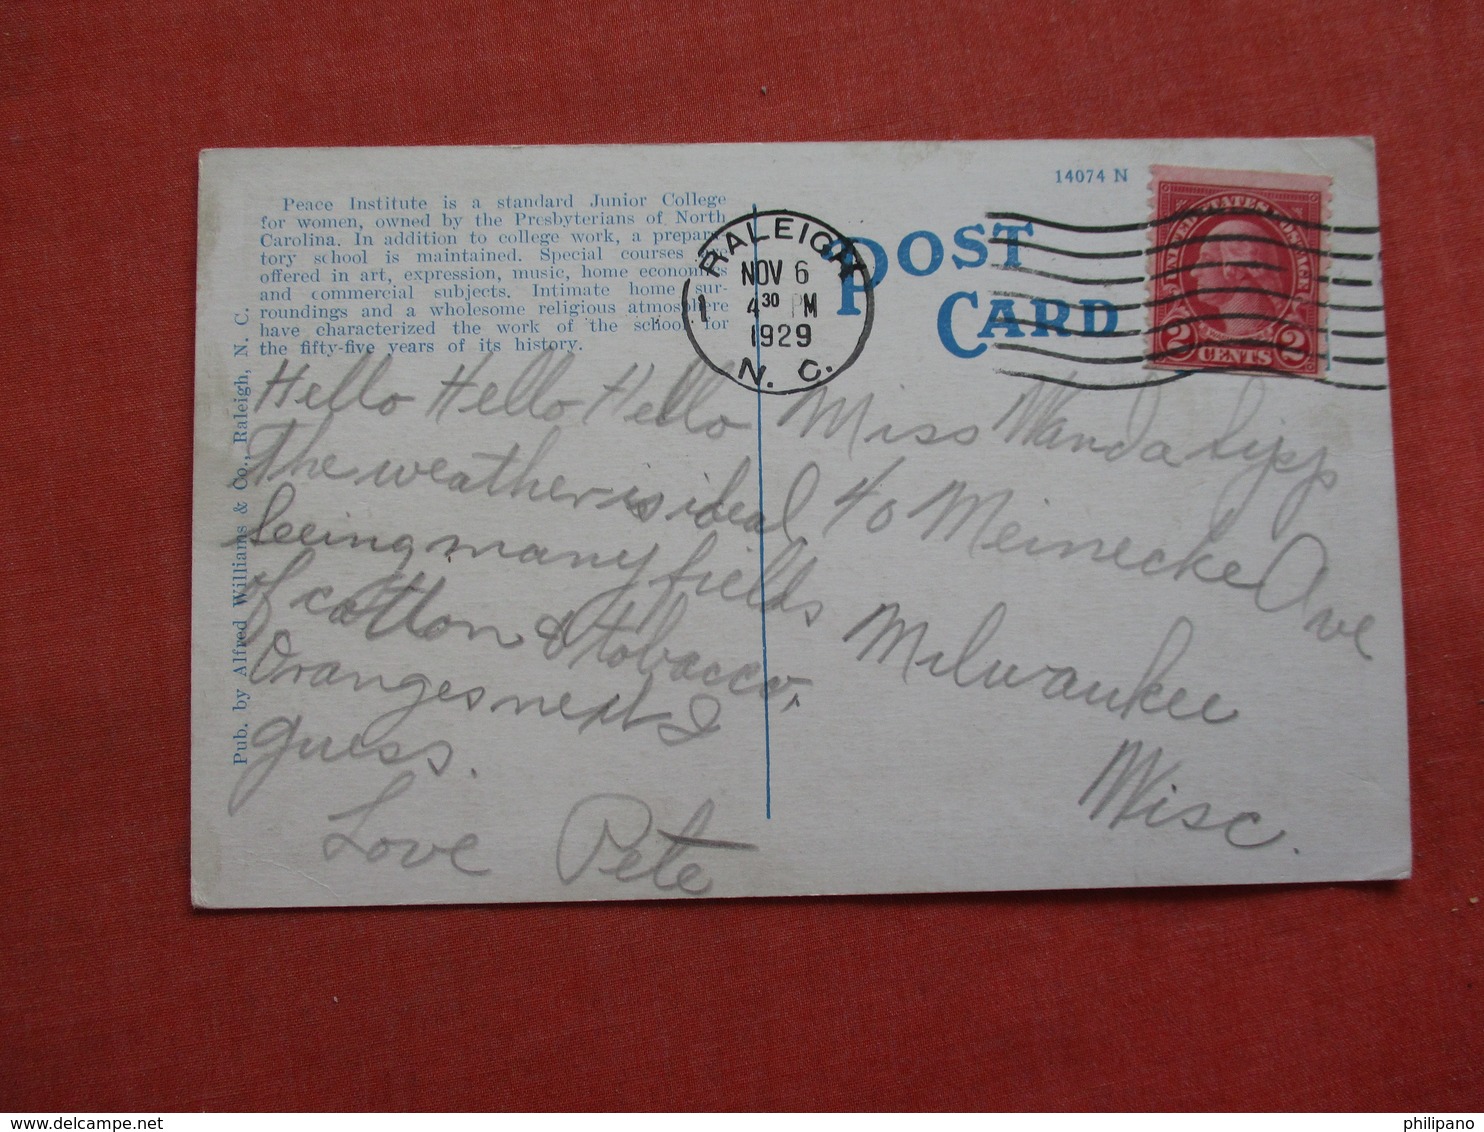 Peace Institute is a standard Junior College
for women, owned by the Presbyterians of North
Carolina. In addition to college work, a prepara-
tory school is maintained. Special courses are
offered in art, expression, music, home economics
and commercial subjects. Intimate home sur-
roundings and a wholesome religious atmosphere
have characterized the work of the school for
the fifty-five years of its history.
Pub. by Alfred Williams & Co., Raleigh, N. C.
Hello Hello Hello
The weather is ideal
Seeing many fields
of cotton & tobacco,
Oranges next I
guess.
Love Pete
RALEIGH
1
NOV 6
4 30 PM
1929
N. C.
14074 N
POST
CARD
UNITED STATES POSTAGE
2 CENTS 2
Miss Wanda Lipp
40 Meinecke Ave
Milwaukee
Wisc.
philipano